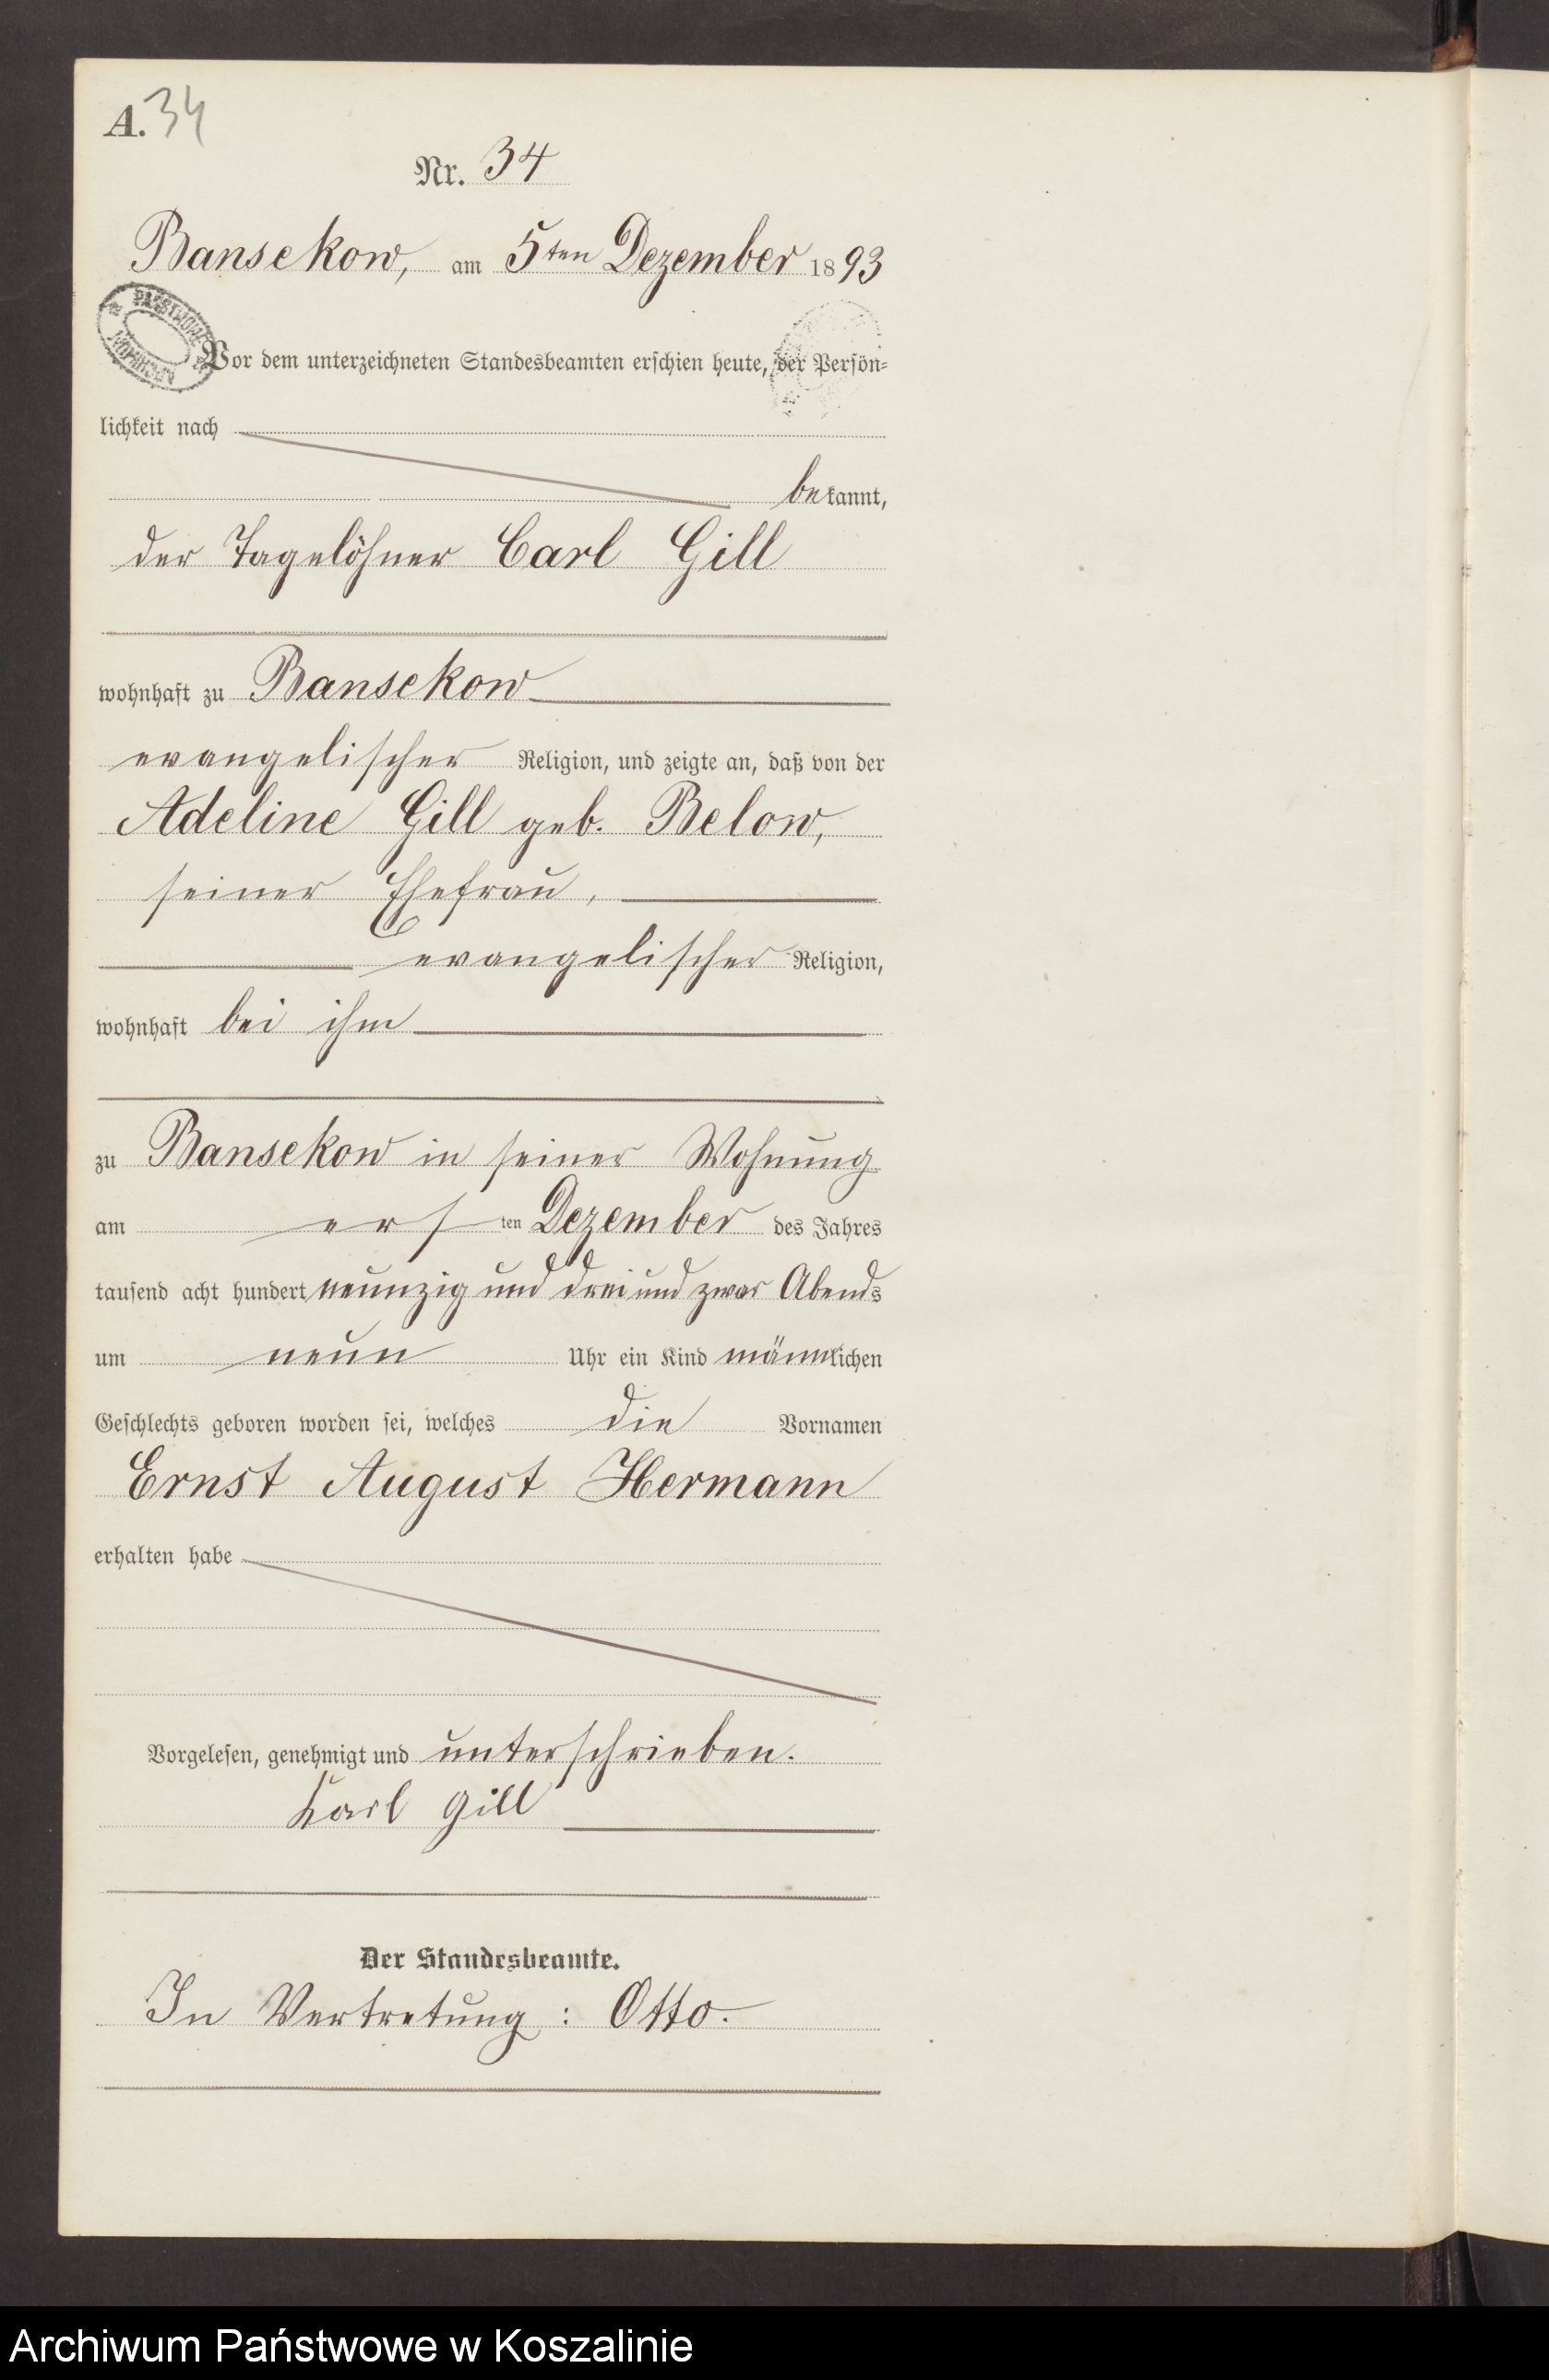 A. 34
Nr. 34
Bansekow, am 5ten Dezember 1893
Vor dem unterzeichneten Standesbeamten erschien heute, der Persön-
lichkeit nach
bekannt,
der Tagelöhner Carl Gill
wohnhaft zu Bansekow
evangelischer Religion, und zeigte an, daß von der
Adeline Gill geb. Below,
seiner Ehefrau,
evangelischer Religion,
wohnhaft bei ihm
zu Bansekow in seiner Wohnung
am ersten Dezember des Jahres
tausend acht hundert neunzig und drei und zwar Abends
um neun Uhr ein Kind männlichen
Geschlechts geboren worden sei, welches die Vornamen
Ernst August Hermann
erhalten habe
Vorgelesen, genehmigt und unterschrieben.
Karl Gill
Der Standesbeamte.
In Vertretung: Otto.
Archiwum Państwowe w Koszalinie